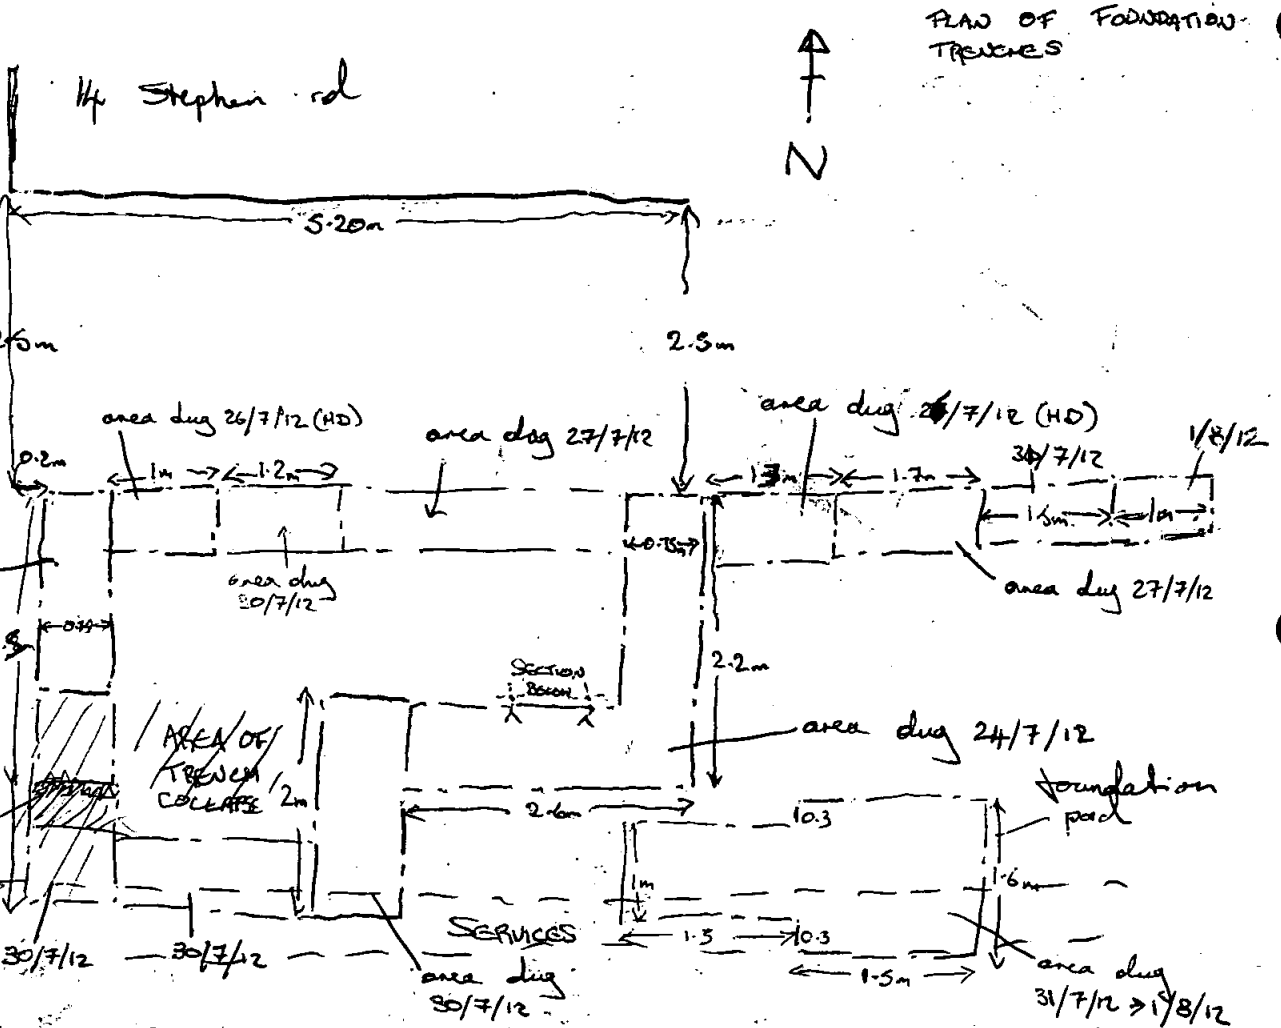 PLAN OF FOUNDATION
TRENCHES
14 Stephen rd
N
5.20m
2.5m
area dug 26/7/12 (HD)
area dug 27/7/12
area dug 26/7/12 (HD)
31/7/12
1/8/12
0.2m
1m
1.2m
1.7m
1.5m
1m
0.75m
area dug
30/7/12
area dug 27/7/12
0.75
SECTION
BELOW
2.2m
AREA OF
TRENCH
COLLAPSE
2m
area dug 24/7/12
foundation
pad
2.6m
0.3
1m
1.6m
SERVICES
1.5
0.3
1.5m
30/7/12
30/7/12
area dug
30/7/12
area dug
31/7/12 > 1/8/12